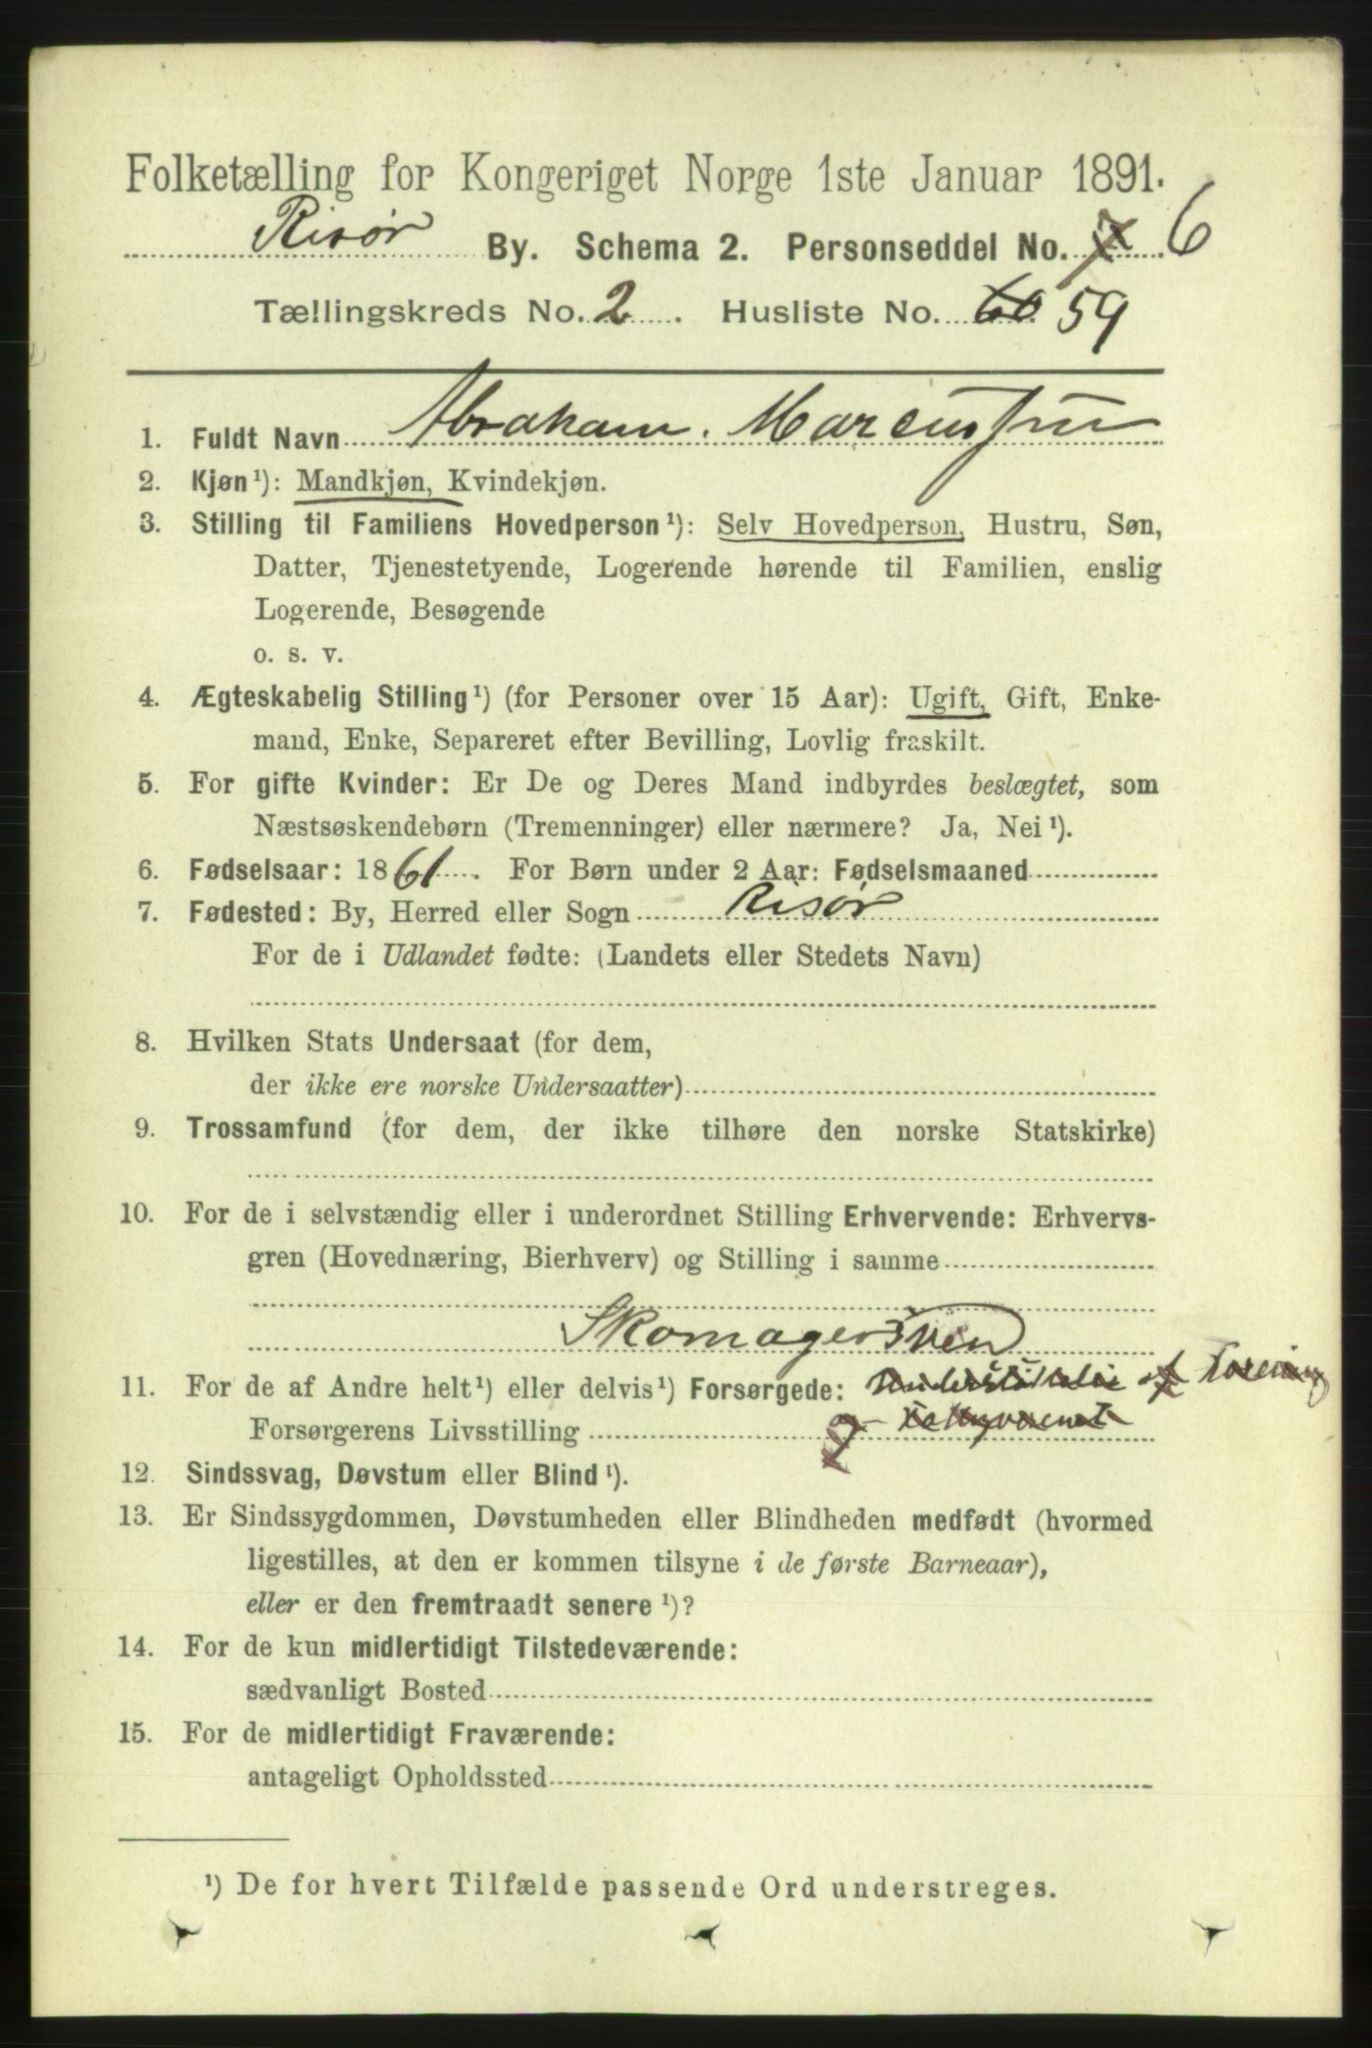 Folketælling for Kongeriget Norge 1ste Januar 1891.
Risør By. Schema 2. Personseddel No. 7 6
Tællingskreds No. 2. Husliste No. 60 59
1. Fuldt Navn Abraham. Marcus
2. Kjøn¹): Mandkjøn, Kvindekjøn.
3. Stilling til Familiens Hovedperson¹): Selv Hovedperson, Hustru, Søn,
Datter, Tjenestetyende, Logerende hørende til Familien, enslig
Logerende, Besøgende
o. s. v.
4. Ægteskabelig Stilling¹) (for Personer over 15 Aar): Ugift, Gift, Enke-
mand, Enke, Separeret efter Bevilling, Lovlig fraskilt.
5. For gifte Kvinder: Er De og Deres Mand indbyrdes beslægtet, som
Næstsøskendebørn (Tremenninger) eller nærmere? Ja, Nei¹).
6. Fødselsaar: 1861. For Børn under 2 Aar: Fødselsmaaned
7. Fødested: By, Herred eller Sogn Risør
For de i Udlandet fødte: (Landets eller Stedets Navn)
8. Hvilken Stats Undersaat (for dem,
der ikke ere norske Undersaatter)
9. Trossamfund (for dem, der ikke tilhøre den norske Statskirke)
10. For de i selvstændig eller i underordnet Stilling Erhvervende: Erhvervs-
gren (Hovednæring, Bierhverv) og Stilling i samme
Skomagersven
11. For de af Andre helt¹) eller delvis¹) Forsørgede: af
Forsørgerens Livsstilling
12. Sindssvag, Døvstum eller Blind¹).
13. Er Sindssygdommen, Døvstumheden eller Blindheden medfødt (hvormed
ligestilles, at den er kommen tilsyne i de første Barneaar),
eller er den fremtraadt senere¹)?
14. For de kun midlertidigt Tilstedeværende:
sædvanligt Bosted
15. For de midlertidigt Fraværende:
antageligt Opholdssted
¹) De for hvert Tilfælde passende Ord understreges.